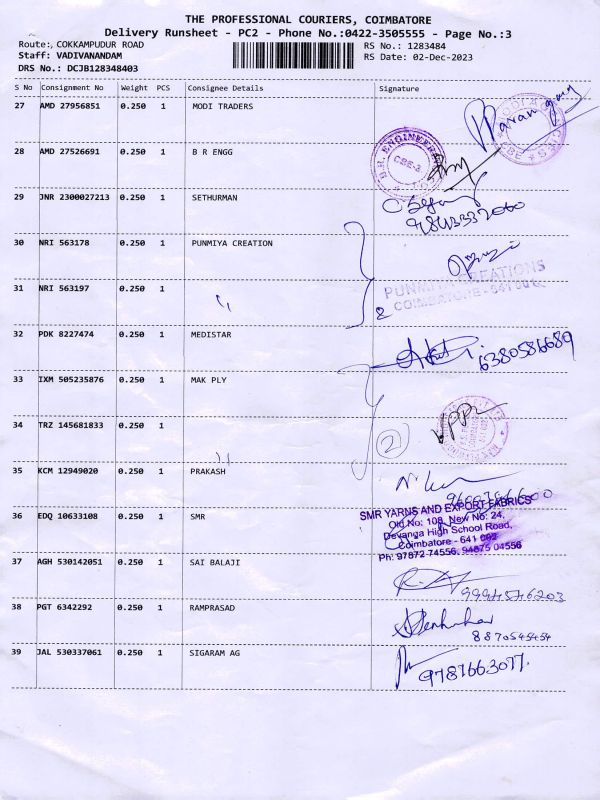 THE PROFESSIONAL COURIERS, COIMBATORE
Delivery Runsheet - PC2 - Phone No.:0422-3505555 - Page No.:3
Route:, COKKAMPUDUR ROAD RS No.: 1283484
Staff: VADIVANANDAM RS Date: 02-Dec-2023
DRS No.: DCJB128348403
S No Consignment No Weight PCS Consignee Details Signature
27 AMD 27956851 0.250 1 MODI TRADERS
28 AMD 27526691 0.250 1 B R ENGG
29 JNR 2300027213 0.250 1 SETHURMAN
30 NRI 563178 0.250 1 PUNMIYA CREATION
PUNMIYA CREATIONS
31 NRI 563197 0.250 1 2
32 PDK 8227474 0.250 1 MEDISTAR 6380586689
33 IXM 505235876 0.250 1 MAK PLY
34 TRZ 145681833 0.250 1 2
35 KCM 12949020 0.250 1 PRAKASH
36 EDQ 10633108 0.250 1 SMR
SMR YARNS AND EXPORT FABRICS
Old No: 108, New No: 24,
Devanga High School Road,
Coimbatore - 641 002
Ph: 97872 74556, 94875 04556
37 AGH 530142051 0.250 1 SAI BALAJI 9994546203
38 PGT 6342292 0.250 1 RAMPRASAD
8870545454
39 JAL 530337061 0.250 1 SIGARAM AG 9787663077.